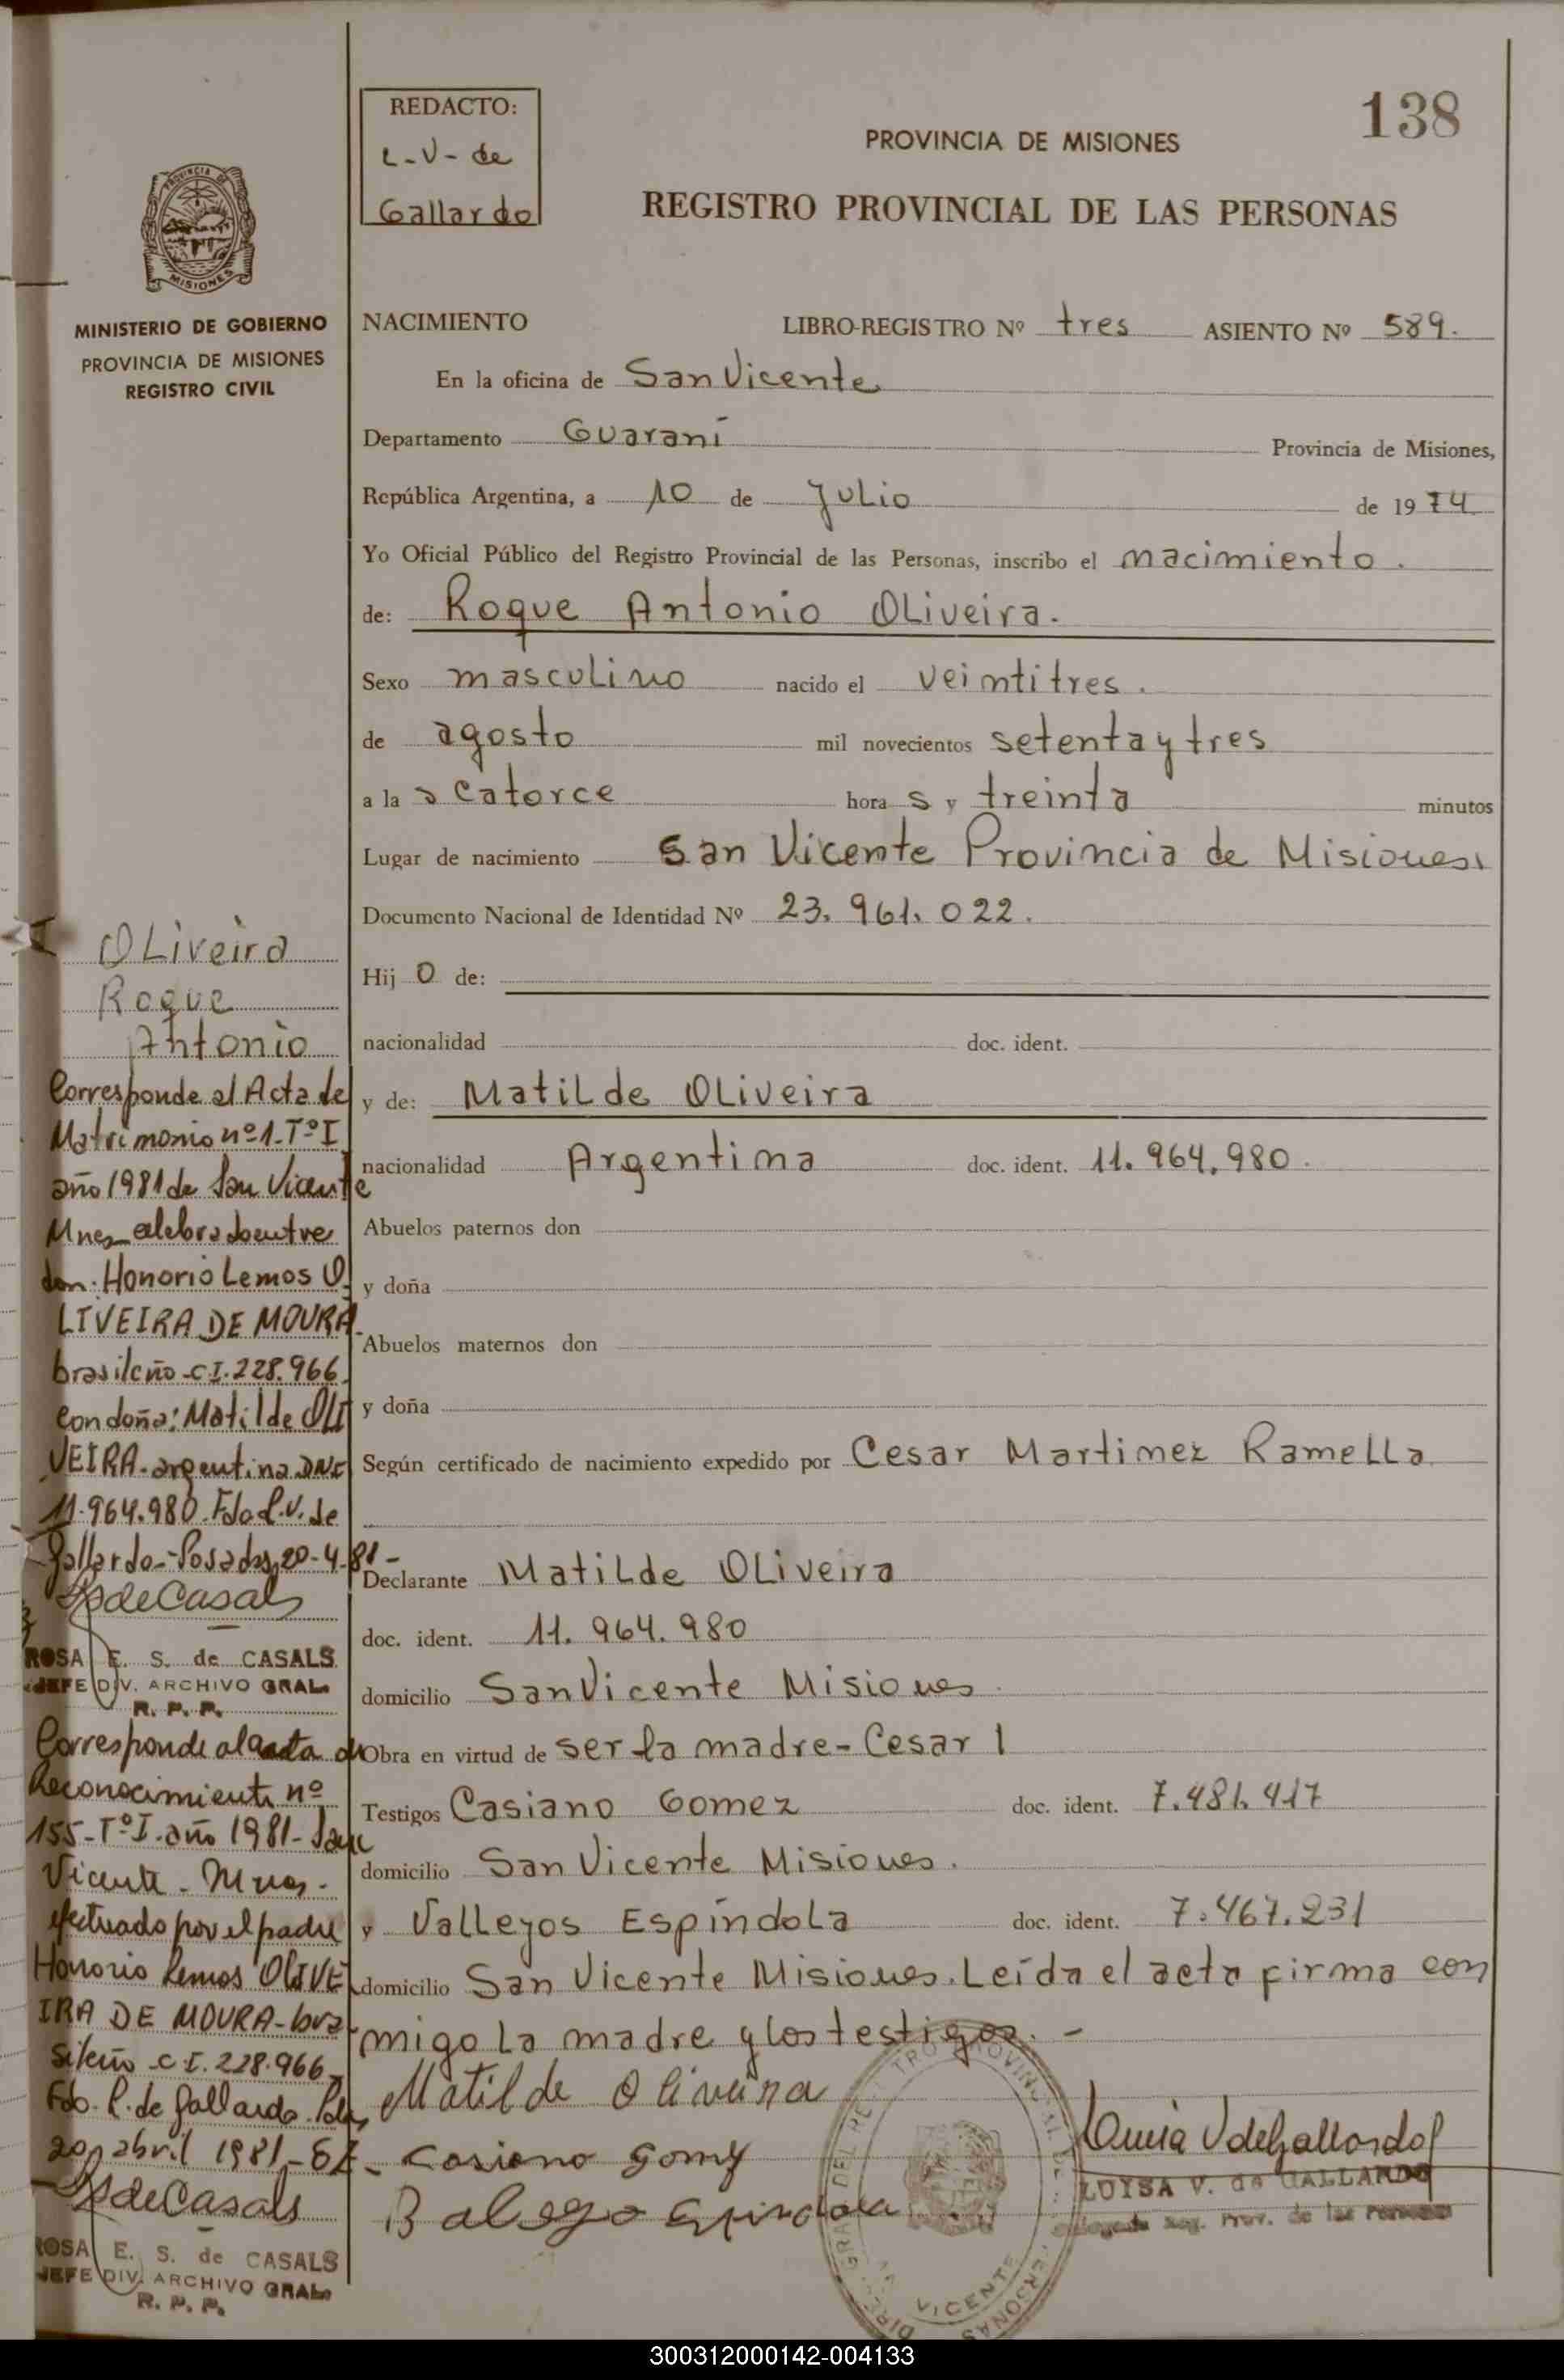 138
REDACTO:
L-V- de
Gallardo
PROVINCIA DE MISIONES
REGISTRO PROVINCIAL DE LAS PERSONAS
PROVINCIA DE
MISIONES
MINISTERIO DE GOBIERNO
PROVINCIA DE MISIONES
REGISTRO CIVIL
NACIMIENTO LIBRO-REGISTRO Nº tres ASIENTO Nº 589.
En la oficina de San Vicente
Departamento Guaraní Provincia de Misiones,
República Argentina, a 10 de Julio de 1974
Yo Oficial Público del Registro Provincial de las Personas, inscribo el nacimiento.
de: Roque Antonio Oliveira.
Sexo masculino nacido el veintitres.
de agosto mil novecientos setenta y tres
a la s catorce hora s y treinta minutos
Lugar de nacimiento San Vicente Provincia de Misiones.
Documento Nacional de Identidad Nº 23.961.022.
Hij o de:
nacionalidad doc. ident.
y de: Matilde Oliveira
nacionalidad Argentina doc. ident. 11.964.980.
Abuelos paternos don
y doña
Abuelos maternos don
y doña
Según certificado de nacimiento expedido por Cesar Martinez Ramella
Declarante Matilde Oliveira
doc. ident. 11.964.980
domicilio San Vicente Misiones.
Obra en virtud de ser la madre - Cesar 1
Testigos Casiano Gomez doc. ident. 7.481.417
domicilio San Vicente Misiones.
y Vallejos Espíndola doc. ident. 7.467.231
domicilio San Vicente Misiones. Leída el acta firma con
migo la madre y los testigos. -
Matilde Oliveira
Casiano Gomy
Balego Espindola
Luisa V de Gallardo
LUISA V. de GALLARDO
Delegada Reg. Prov. de las Personas
VICENTE
Oliveira
Roque
Antonio
Corresponde al Acta de
Matrimonio nº 1-Tº I
año 1981 de San Vicente
Mnes celebrado entre
don: Honorio Lemos O
LIVEIRA DE MOURA-
brasileño-C.I. 228.966
con doña: Matilde OLI
VEIRA-argentina DNI
11.964.980. Fdo L.V. de
Gallardo-Posadas, 20-4-81-
S de Casals
ROSA E. S. de CASALS
JEFE DIV. ARCHIVO GRAL.
R. P. P.
Corresponde al acta de
Reconocimiento nº
155-Tº I-año 1981-San
Vicente-Mnes-
efectuado por el padre
Honorio Lemos OLIVE
IRA DE MOURA-bra-
sileño-C.I. 228.966
Fdo. L. de Gallardo. Pdas,
20, abril 1981-
S de Casals
ROSA E. S. de CASALS
JEFE DIV. ARCHIVO GRAL.
R. P. P.
300312000142-004133